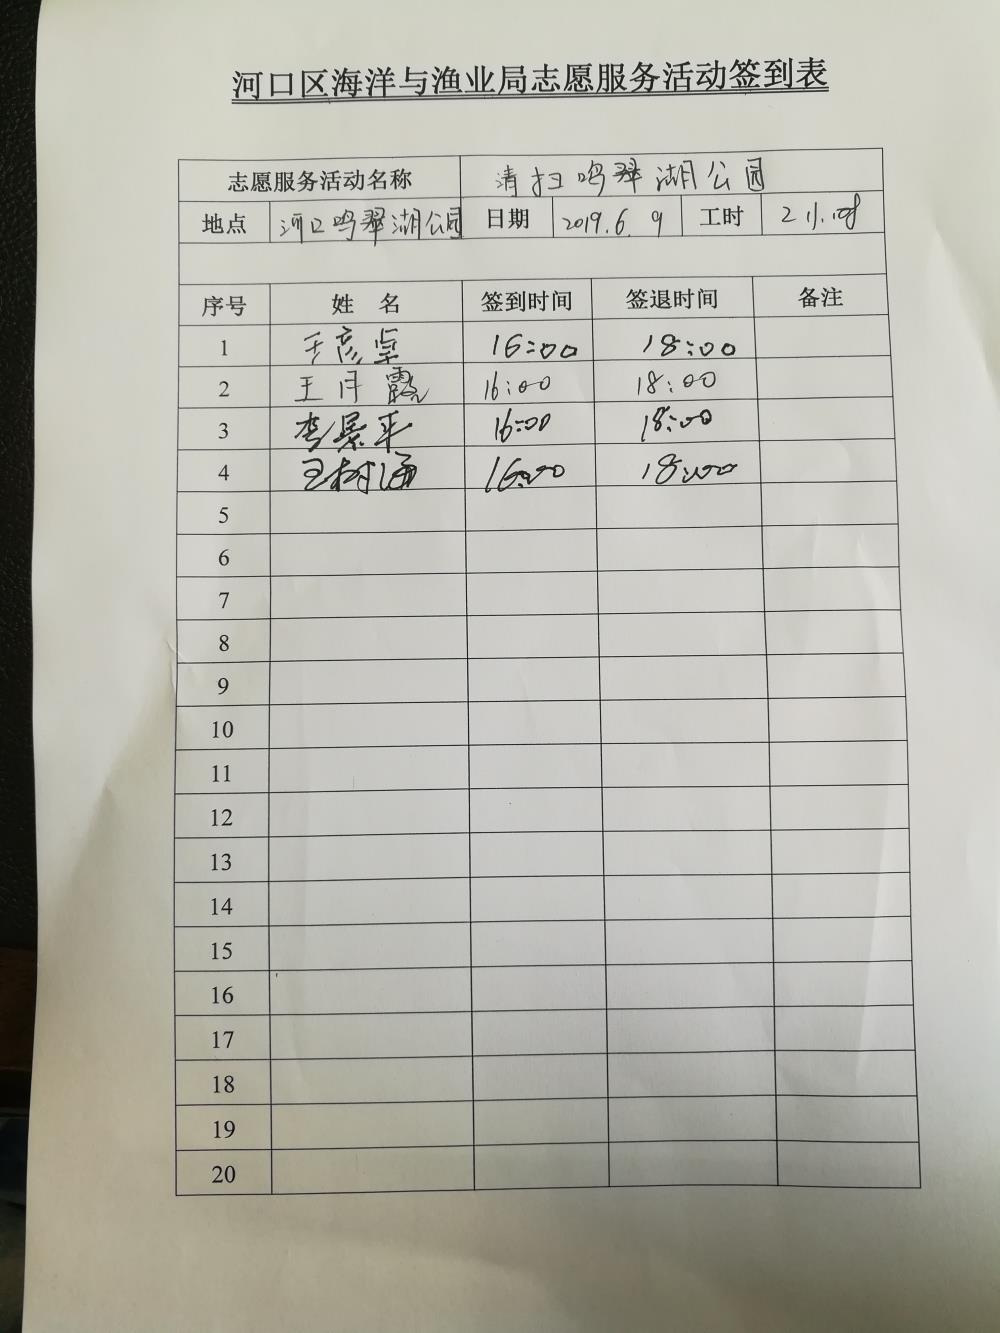 河口区海洋与渔业局志愿服务活动签到表
志愿服务活动名称 清扫鸣翠湖公园
地点 河口鸣翠湖公园 日期 2019.6.9 工时 2小时
序号 姓 名 签到时间 签退时间 备注
1 王彦卓 16:00 18:00
2 王月霞 16:00 18:00
3 李景平 16:00 18:00
4 王树海 16:00 18:00
5
6
7
8
9
10
11
12
13
14
15
16
17
18
19
20